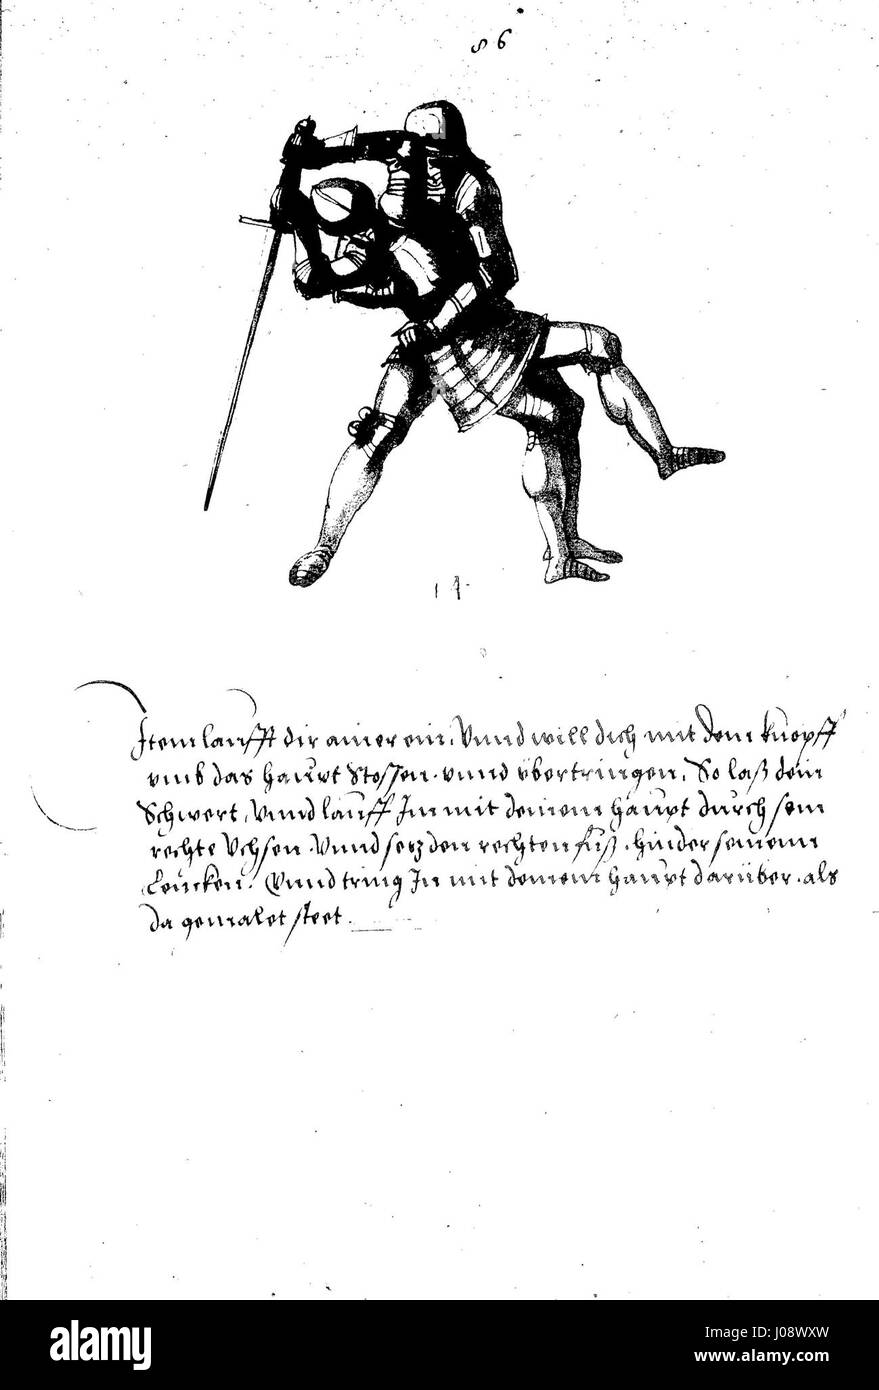 86
14
Item laufft dir ainer ein, Vnnd will dich mit dem knopff
vmb das haupt Stossen. vnnd vbertringen. So laß dein
Schwert, Vnnd lauff Im mit deinem haupt durch sein
rechte Vchsen. Vnnd setz den rechten fuß. hinder seinenn
Lincken. Vnnd tring In mit deinem haupt darüber. als
da gemalet steet.
alamy
Image ID: J08WXW
www.alamy.com